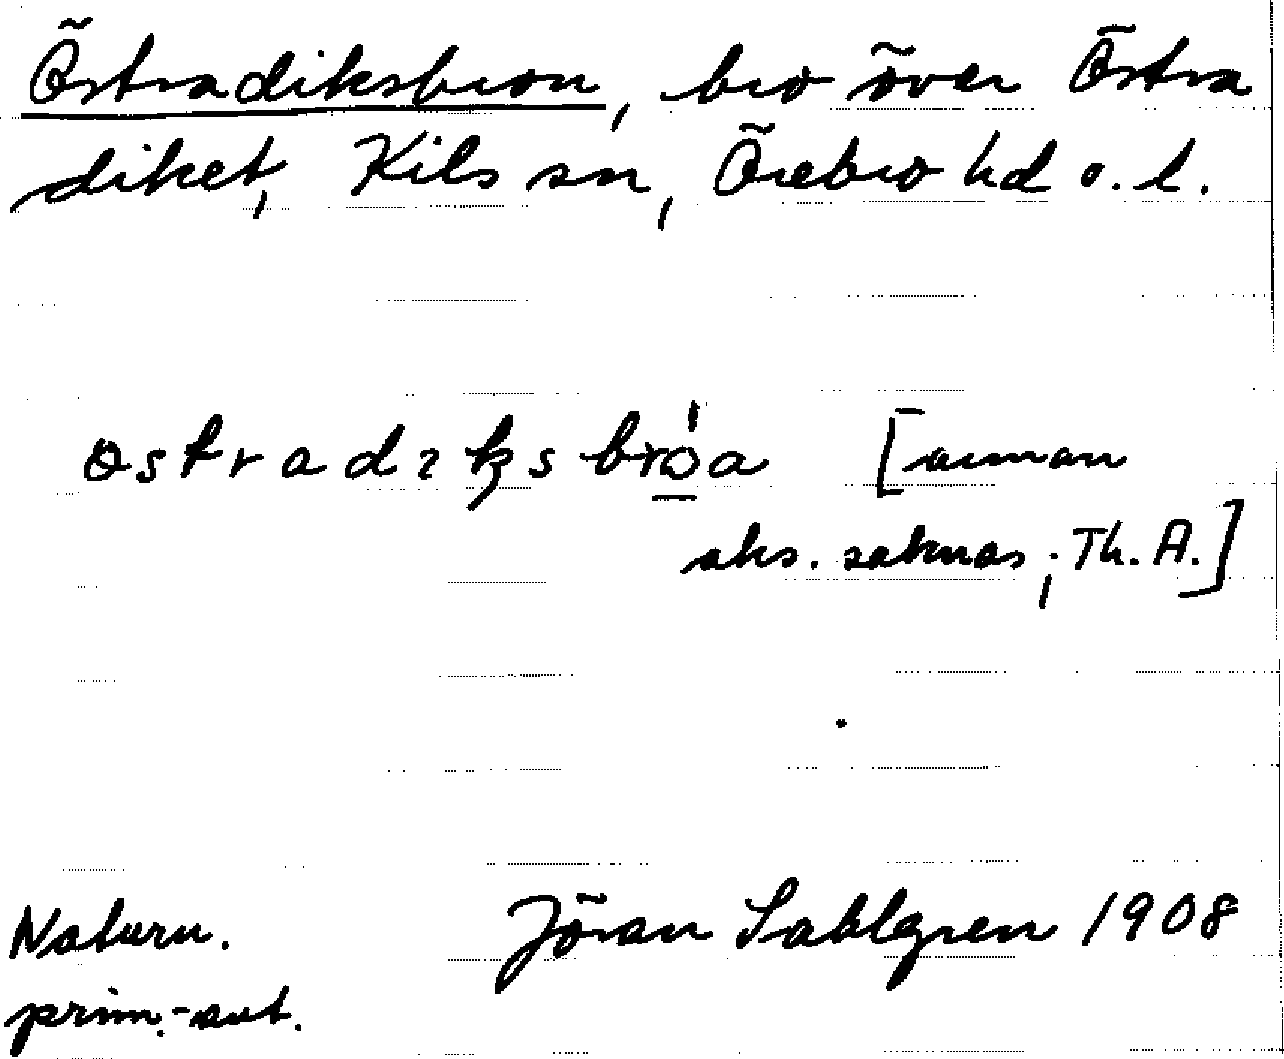 Östradiksbron, bro över Östra
diket, Kils sn, Örebro hd o. l.
ɵstradıksbróa [annan
aks. saknas; Th. A.]
Naturn. Jöran Sahlgren 1908
prim.-ant.